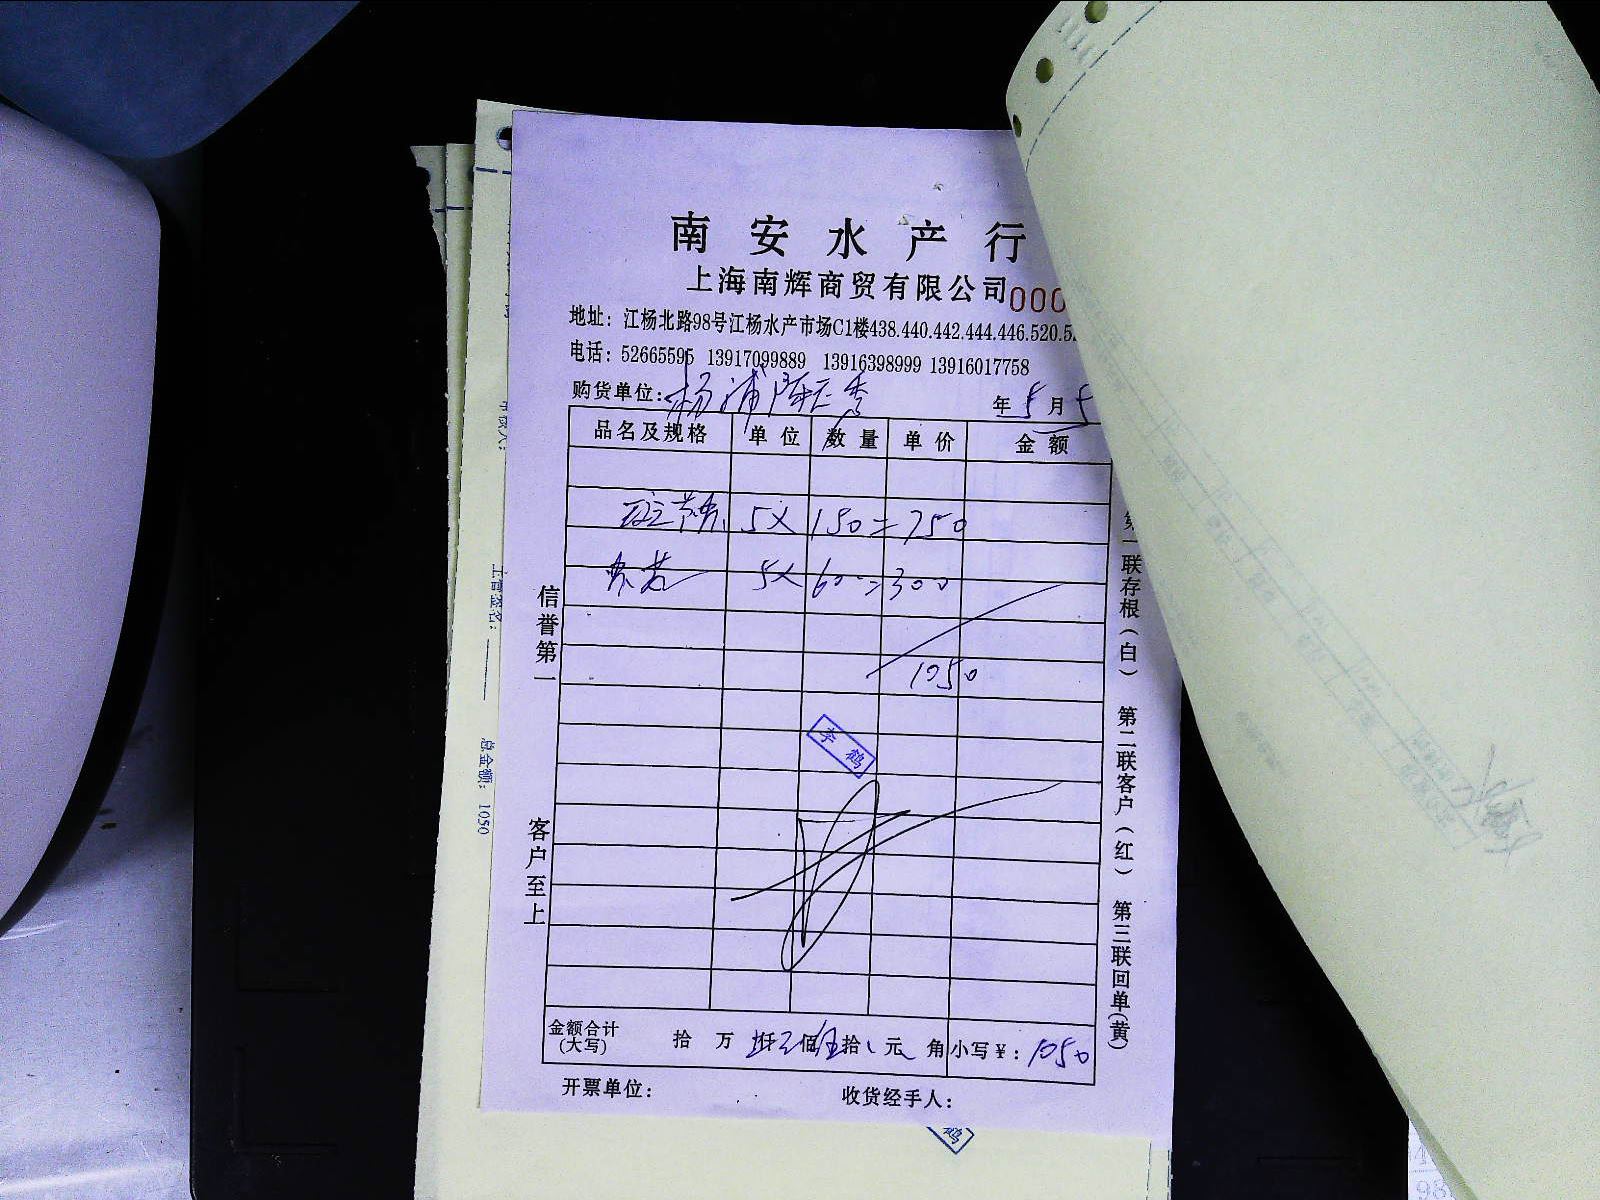 南安水产行
上海南辉商贸有限公司 000
地址：江杨北路98号江杨水产市场C1楼438.440.442.444.446.520.5
电话：52665595 13917099889 13916398999 13916017758
购货单位：杨浦 年5月5
品名及规格 单位 数量 单价 金额
5× 150=750
5× 60=300
1050
李鹤
信誉第一
客户至上
第一联存根（白） 第二联客户（红） 第三联回单(黄)
金额合计(大写) 拾 万 仟 佰 拾 元 角 小写￥：1050
开票单位： 收货经手人：
主管签名：
总金额：1050
鹤